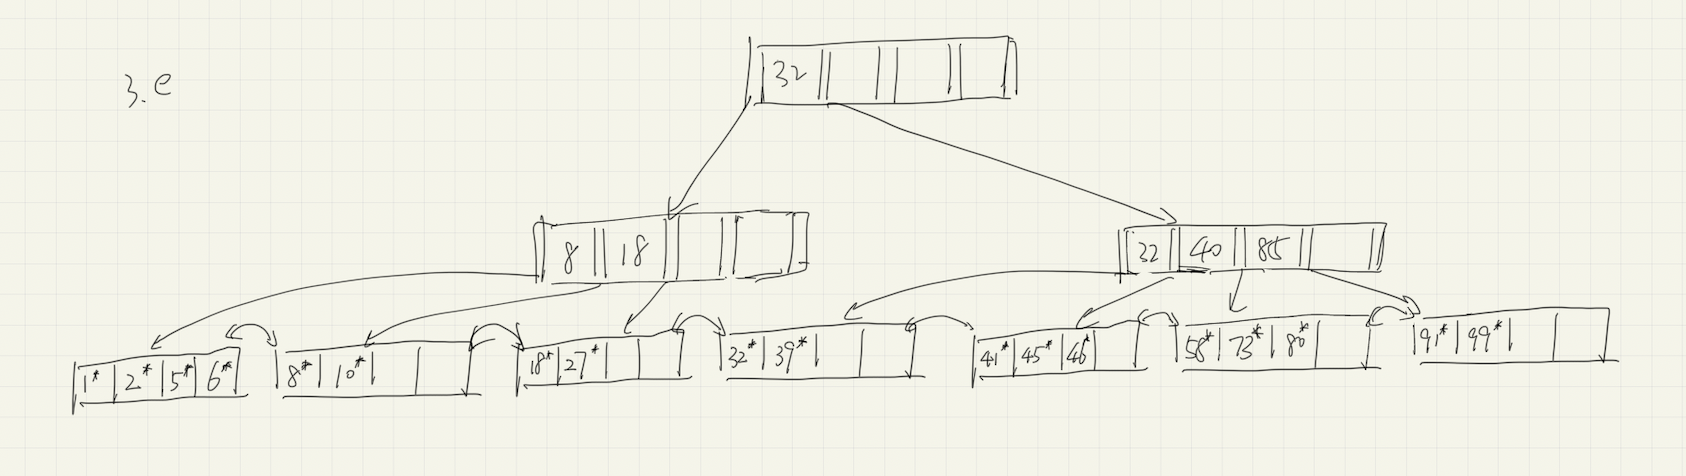 3.e
32
8 18
32 40 85
1* 2* 5* 6* 8* 10* 18* 27* 32* 39* 41* 45* 46* 58* 73* 80* 91* 99*